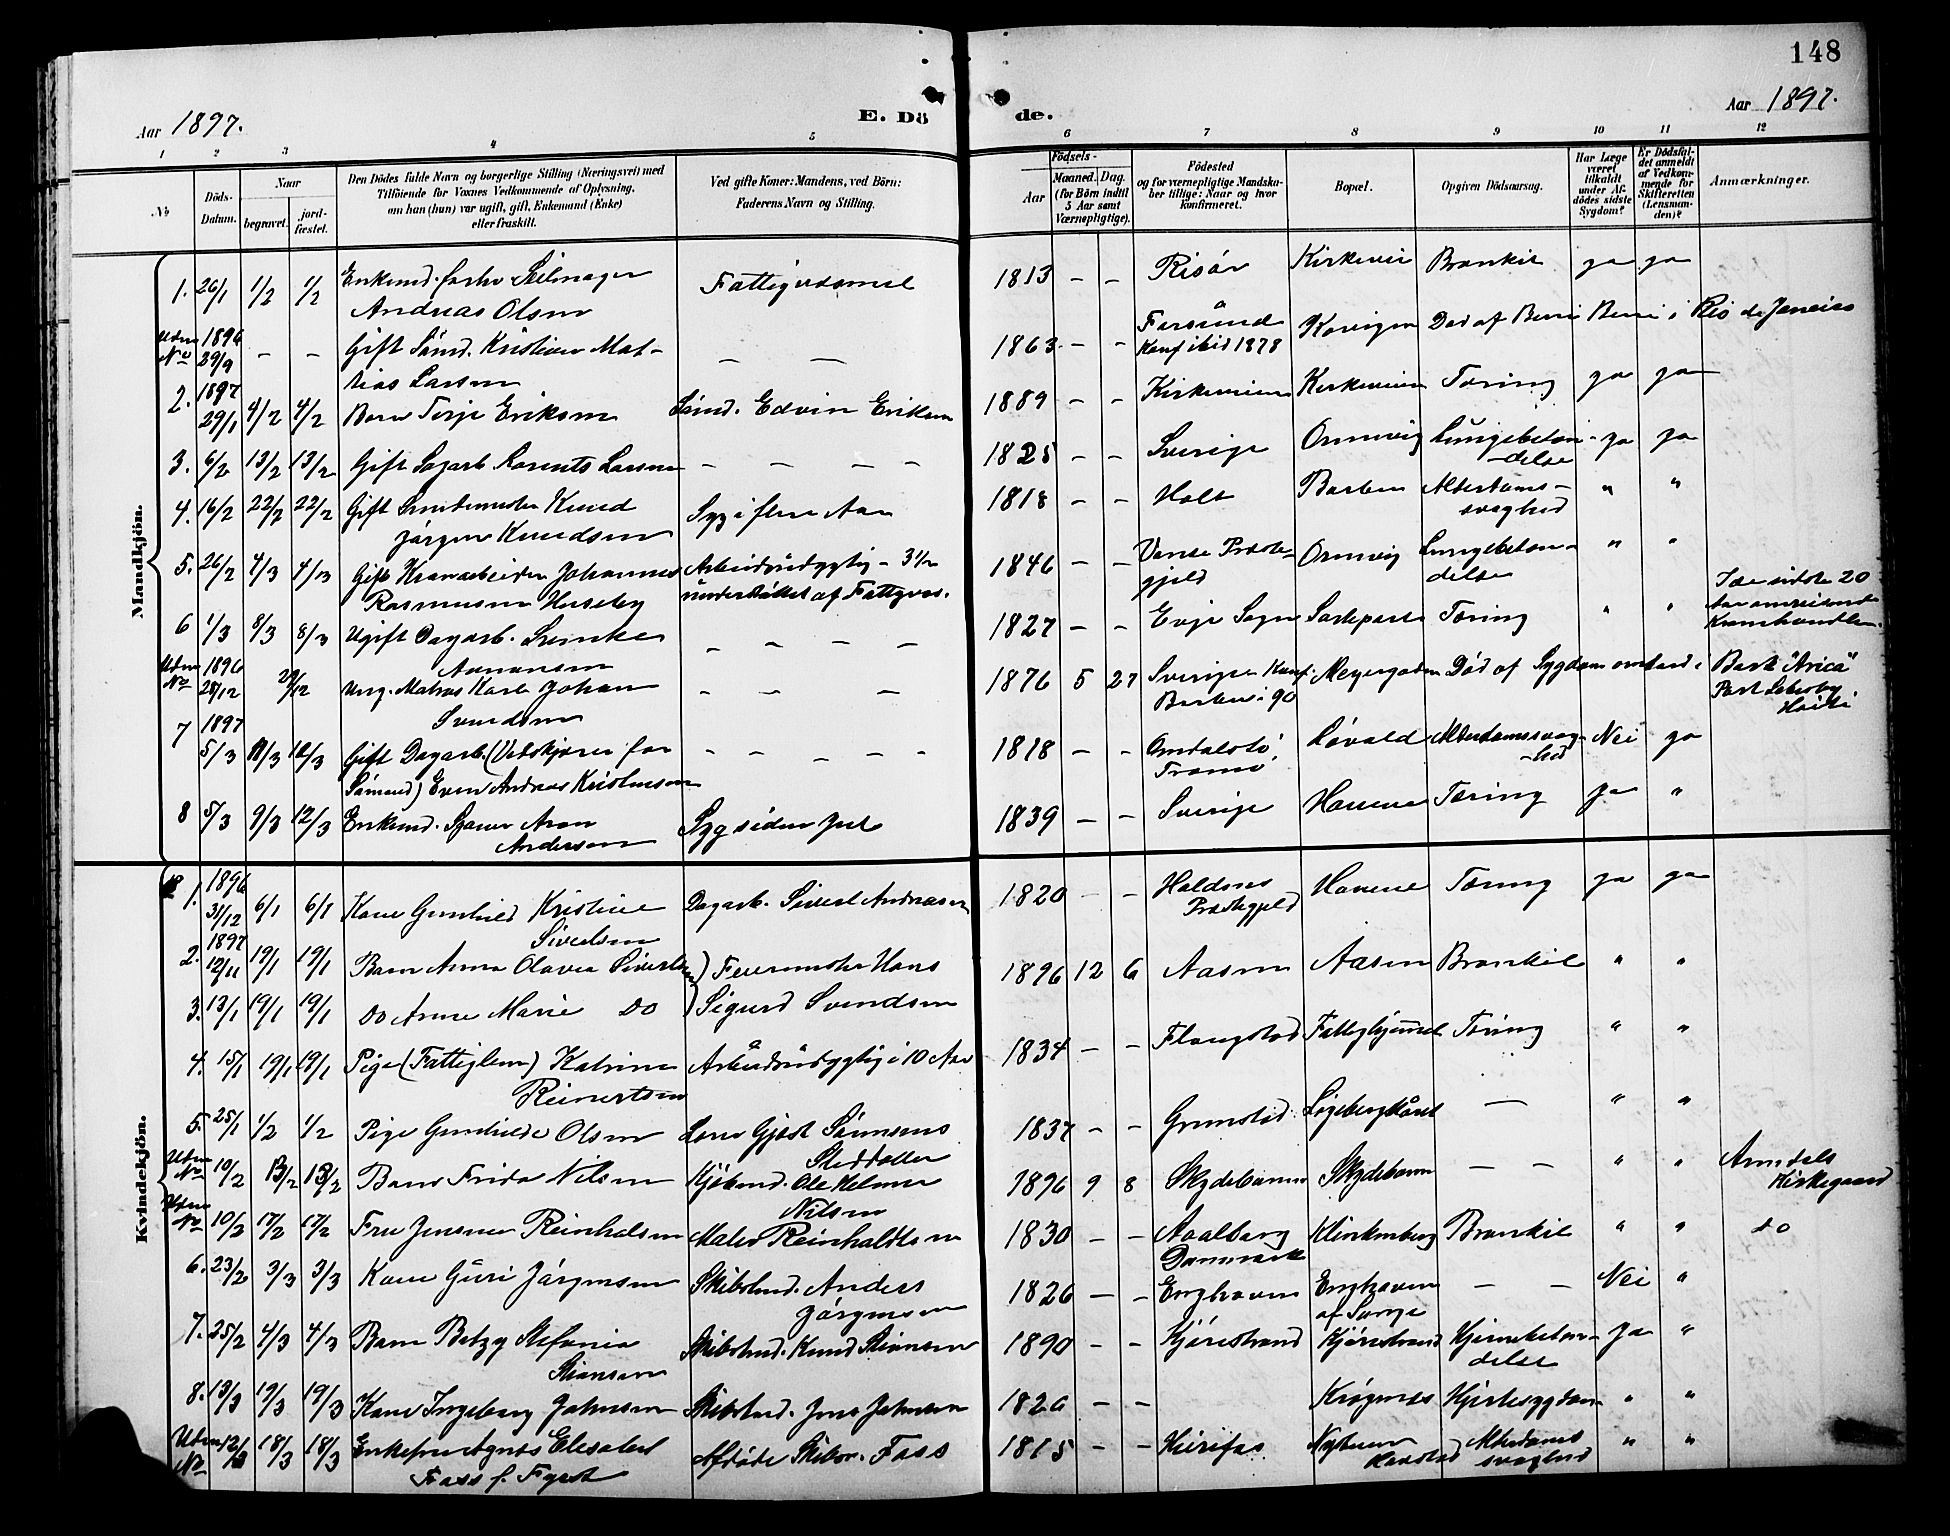 148
Aar 1897.
E. Dö
de.
Aar 1897.
1 2 3 4 5
6 7 8 9 10 11 12
No
Döds-
Datum.
Naar
begravet.
jord-
fæstet.
Den Dödes fulde Navn og borgerlige Stilling (Næringsvei) med
Tilföiende for Voxnes Vedkommende af Oplysning,
om han (hun) var ugift, gift, Enkemand (Enke)
eller fraskilt.
Ved gifte Koner: Mandens, ved Börn:
Faderens Navn og Stilling.
Födsels-
Aar
Maaned. Dag.
(for Börn indtil
5 Aar samt
Værnepligtige).
Födested
og for værnepligtige Mandska-
ber tillige: Naar og hvor
konfirmeret.
Bopæl.
Opgiven Dödsaarsag.
Har Læge
været
tilkaldt
under Af-
dödes sidste
Sygdom?
Er Dödsfal-
det anmeldt
af Vedkom-
mende for
Skifteretten
(Lensman-
den)?
Anmærkninger.
Mandkjön.
1. 26/1 1/2 1/2 Enkemd. Seilmager
Andreas Olsen
1813 – – Risør Kirkeveien Bronkit ja ja
Uden No 1896 29/9 – – Gift Sømd. Kristian Mat-
hias Larsen
– –
1863 – – Farsund
Konf ibid 1878
Død af Beri Beri i Rio de Janeiro
2. 1897 29/1 4/2 4/2 Barn Terje Eriksen Sømd. Edvin Eriksen
1889 – – Kirkeveien Kirkeveien Tæring ja ja
3. 6/2 13/2 13/2 Gift Sagarb. Lorents Larsen – – – –
1825 – – Sverige Ormevig Lungebetæn-
delse ja ja
4. 16/2 22/2 22/2 Gift Knud
Jørgen Knudsen
Syg i flere Aar
1818 – – Holt Barbu Alderdoms-
svaghed " "
5. 26/2 4/3 4/3 Gift Kranarbeider Johannes
Rasmussen Huseby
Arbeidsudygtig – 3 1/2
understøttet af Fattigvæs.
1846 – – Vanse Præste-
gjeld Ormevig Lungebetæn-
delse " "
6 1/3 8/3 8/3 Ugift Dagarb.
Aanonsen
– – – –
1827 – – Evje Sogn Tæring " "
I de sidste 20
Aar
Kramhandler.
Uden No 1896 28/12 29/12 Ung. Matros Karl Johan
Svendsen
– – –
1876 5 27 Sverige Konf.
Barbu i 90
Meyergaden Død af Sygdom ombord i Bark "Arica"
Port
Haiti
7 1897 5/3 11/3 12/3 Gift Dagarb. (Vedskjærer før
Sømand) Even Andreas Kristensen
– – – –
1818 – –
Tromø Løvold Alderdomssvag-
hed Nei ja
8 5/3 9/3 12/3 Enkemd. Aron
Andersen
Syg siden Jul
1839 – – Sverige Havene Tæring ja "
Kvindekjön.
1. 1896 31/12 6/1 6/1 Kone Gunhild Kristine
Sivertsen
Dagarb. Sivert Andreasen
1820 – –
Præstegjeld Havene Tæring ja ja
2. 1897 12/11 19/1 19/1 Barn Anna Olavia Sivertsen ) Feiermester Hans
1896 12 6 Aasen Aasen Bronkit " "
3. 13/1 19/1 19/1 do Anne Marie do ) Sigurd Svendsen
4. 15/1 19/1 19/1 Pige (Fattiglem) Katrine
Reinertsen
Arbeidsudygtig i 10 Aar
1834 – – Flangstad Fattighjemmet Tæring " "
5. 25/1 1/2 1/2 Pige Gunhilde Olsen
Steddatter
1837 – – Grimstad – " "
Uden No 10/2 13/2 13/2 Barn Frida Nilsen Kjøbmd. Ole Helmer
Nilsen
1896 9 8 Skydebanen Skydebanen – – " " Arendals
Kirkegaard
Uden No 10/2 17/2 17/2 Fru Reinholdsen Maler Reinholdtsen
1830 – – Aalborg
Danmark Klinkenberg Bronkit " " do
6. 23/2 3/3 3/3 Kone Guri Jørgensen Skibstmd. Anders
Jørgensen
1826 – – Enghaven Enghaven
– – Nei "
7. 25/2 4/3 4/3 Barn Betzy Stefania
Skibstmd. Knud
1890 – – Kjørrestrand Kjørrestrand Hjernebetæn-
delse ja "
8. 13/3 19/3 19/3 Kone Ingeborg Johnsen Skibstmd. Jens Johnsen
1826 – – Krøgenes Hjertesygdom " "
Uden No 12/3 18/3 18/3 Enkefru Agnes Elisabet
Fass f.
Afdøde Fass
1815 – – Alderdoms
svaghed " "